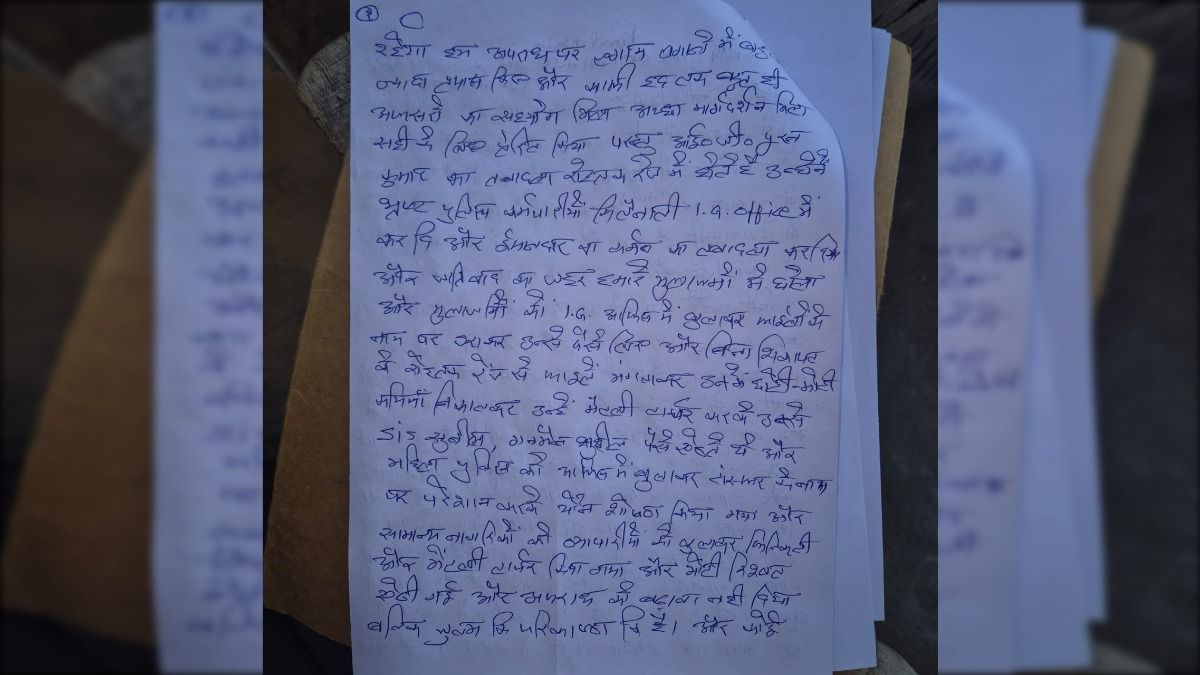 २
रहेगा इस अपराध पर लगाम लगाने में बहुत
ज्यादा प्रयास किए और काफी हद तक बहुत ही
अफसरों का सहयोग मिला अच्छा मार्गदर्शन मिला
सही के लिए प्रेरित किया परन्तु आई०जी० पूरन
कुमार का तबादला रोहतक रेंज में होते है उन्होंने
भ्रष्ट पुलिस कर्मचारीयों कि तैनाती I.G. office में
कर दि और ईमानदार का तबादला कर दिया
और जातिवाद का जहर हमारे मुलाजमों में घोला
और मुलाजमों को I.G. आफिस में बुलाकर फाइलों के
नाम पर डराकर उनसे पैसे लिए और बिना शिकायत
के रोहतक रेंज से फाइलें मंगवाकर उनमें छोटी-मोटी
कमियां निकालकर उन्हें मेंटली टार्चर करके उनसे
SIS सुनील, गनमैन सुशील पैसे ऐंठते थे और
महिला पुलिस को आफिस में बुलाकर ट्रांसफर के नाम
पर परेशान करके यौन शोषण किया गया और
सामान्य नागरिकों को व्यापारीयों को बुलाकर फिजिकली
और मेंटली टार्चर किया गया और मोटी रिश्वत
ऐंठी गई और अपराध को बढ़ावा नहीं दिया
बल्कि जुल्म कि पराकाष्ठा कि है। और कोई